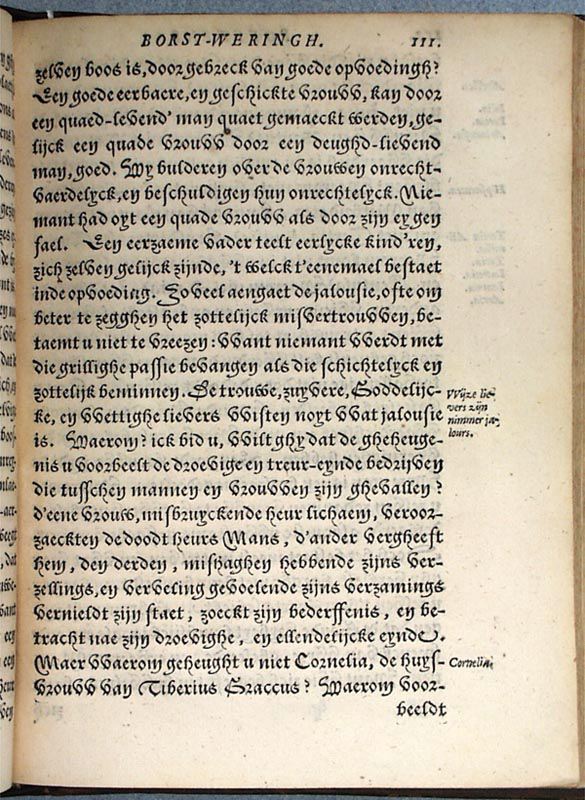 BORST-WERINGH. III.
zelven boos is, door gebreck van goede opvoedingh?
Een goede eerbaere, en geschickte vrouvv, kan door
een quaed-levend' man quaet gemaeckt werden, ge-
lijck een quade vrouvv door een deughd-lievend
man, goed. Wy bulderen over de vrouwen onrecht-
vaerdelyck, en beschuldigen hun onrechtelyck. Nie-
mant had oyt een quade vrouvv als door zijn eygen
fael. Een eerzaeme vader teelt eerlycke kind'ren,
zich zelven gelijck zijnde, 't welck t'eenemael bestaet
inde opvoeding. Zo veel aengaet de jalousie, ofte om
beter te zegghen het zottelijck misvertrouvven, be-
taemt u niet te vreezen: vvant niemant vverdt met
die grillighe passie bevangen als die schichtelyck en
zottelijk beminnen. De trouwe, zuyvere, Goddelijc-
ke, en vvettighe lievers vvisten noyt vvat jalousie
is. Waerom? ick bid u, vvilt ghy dat de gheheuge-
nis u voorbeelt de droevige en treur-eynde bedrijven
die tusschen mannen en vrouvven zijn ghevallen?
d'eene vrouw, misbruyckende heur lichaem, veroor-
zaeckten de doodt heurs Mans, d'ander vergheeft
hem, den derden, mishaghen hebbende zijns ver-
zellings, en verveling gevoelende zijns verzamings
vernieldt zijn staet, zoeckt zijn bederffenis, en be-
tracht nae zijn droevighe, en ellendelijcke eynde.
Maer vvaerom geheught u niet Cornelia, de huys-
vrouvv van Tiberius Graccus? Waerom voor-
beeldt
Wijze lie-
vers zijn
nimmer ja-
lours.
Cornelia.